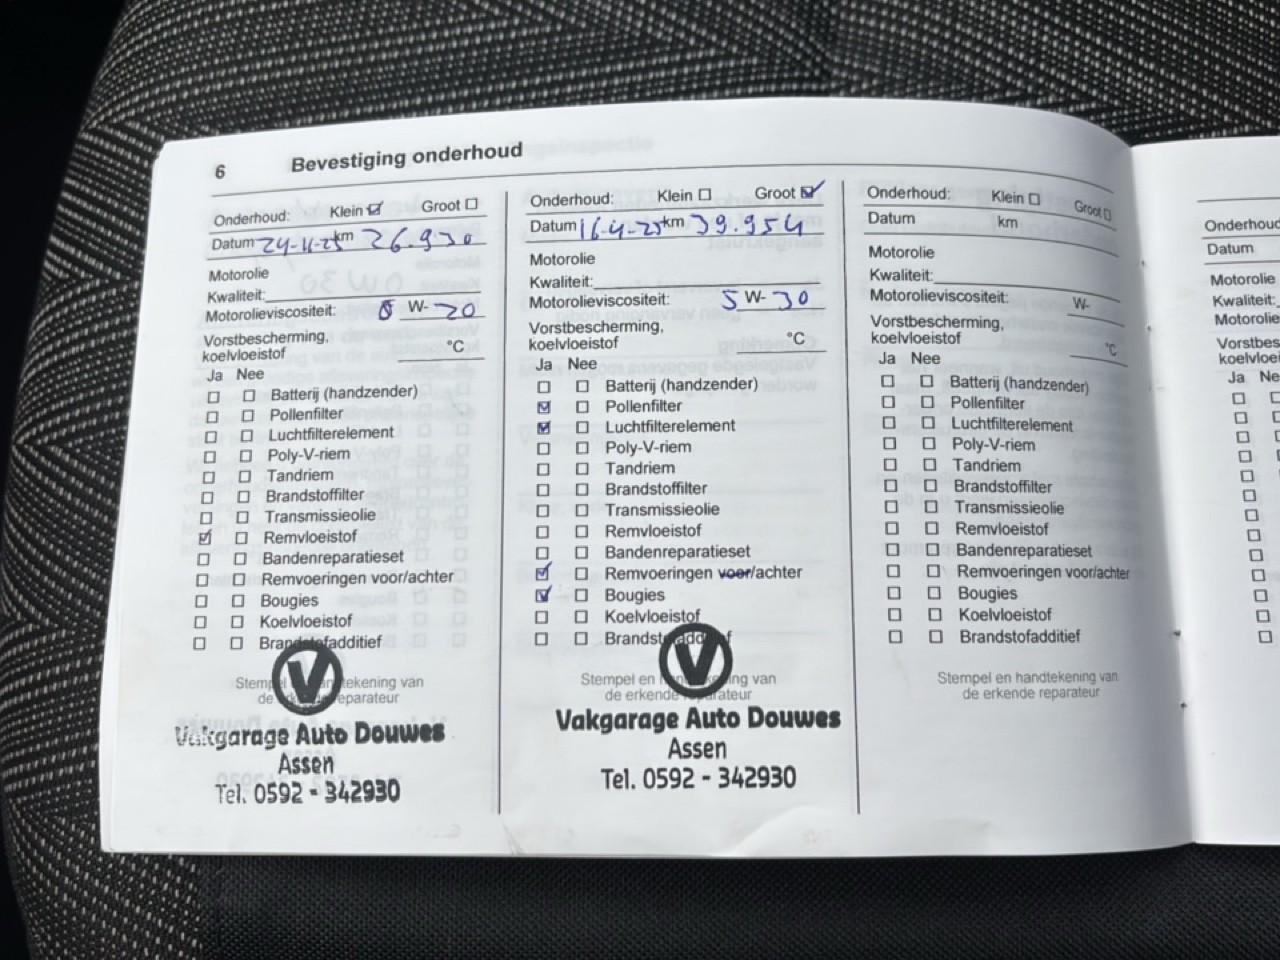 6 Bevestiging onderhoud
Onderhoud: Klein Groot
Datum km 26.930
Motorolie
Kwaliteit:
Motorolieviscositeit: W-
Vorstbescherming,
koelvloeistof °C
Ja Nee
Batterij (handzender)
Pollenfilter
Luchtfilterelement
Poly-V-riem
Tandriem
Brandstoffilter
Transmissieolie
Remvloeistof
Bandenreparatieset
Remvoeringen voor/achter
Bougies
Koelvloeistof
Brandstofadditief
Stempel en handtekening van
de erkende reparateur
V
Vakgarage Auto Douwes
Assen
Tel. 0592 - 342930
Onderhoud: Klein Groot
Datum 16-4-25 km 39.954
Motorolie
Kwaliteit:
Motorolieviscositeit: 5 W- 30
Vorstbescherming,
koelvloeistof °C
Ja Nee
Batterij (handzender)
Pollenfilter
Luchtfilterelement
Poly-V-riem
Tandriem
Brandstoffilter
Transmissieolie
Remvloeistof
Bandenreparatieset
Remvoeringen voor/achter
Bougies
Koelvloeistof
Brandstofadditief
Stempel en handtekening van
de erkende reparateur
V
Vakgarage Auto Douwes
Assen
Tel. 0592 - 342930
Onderhoud: Klein Groot
Datum km
Motorolie
Kwaliteit:
Motorolieviscositeit: W-
Vorstbescherming,
koelvloeistof °C
Ja Nee
Batterij (handzender)
Pollenfilter
Luchtfilterelement
Poly-V-riem
Tandriem
Brandstoffilter
Transmissieolie
Remvloeistof
Bandenreparatieset
Remvoeringen voor/achter
Bougies
Koelvloeistof
Brandstofadditief
Stempel en handtekening van
de erkende reparateur
Onderhoud
Datum
Motorolie
Kwaliteit:
Motorolie
Vorstbes
koelvloei
Ja Ne